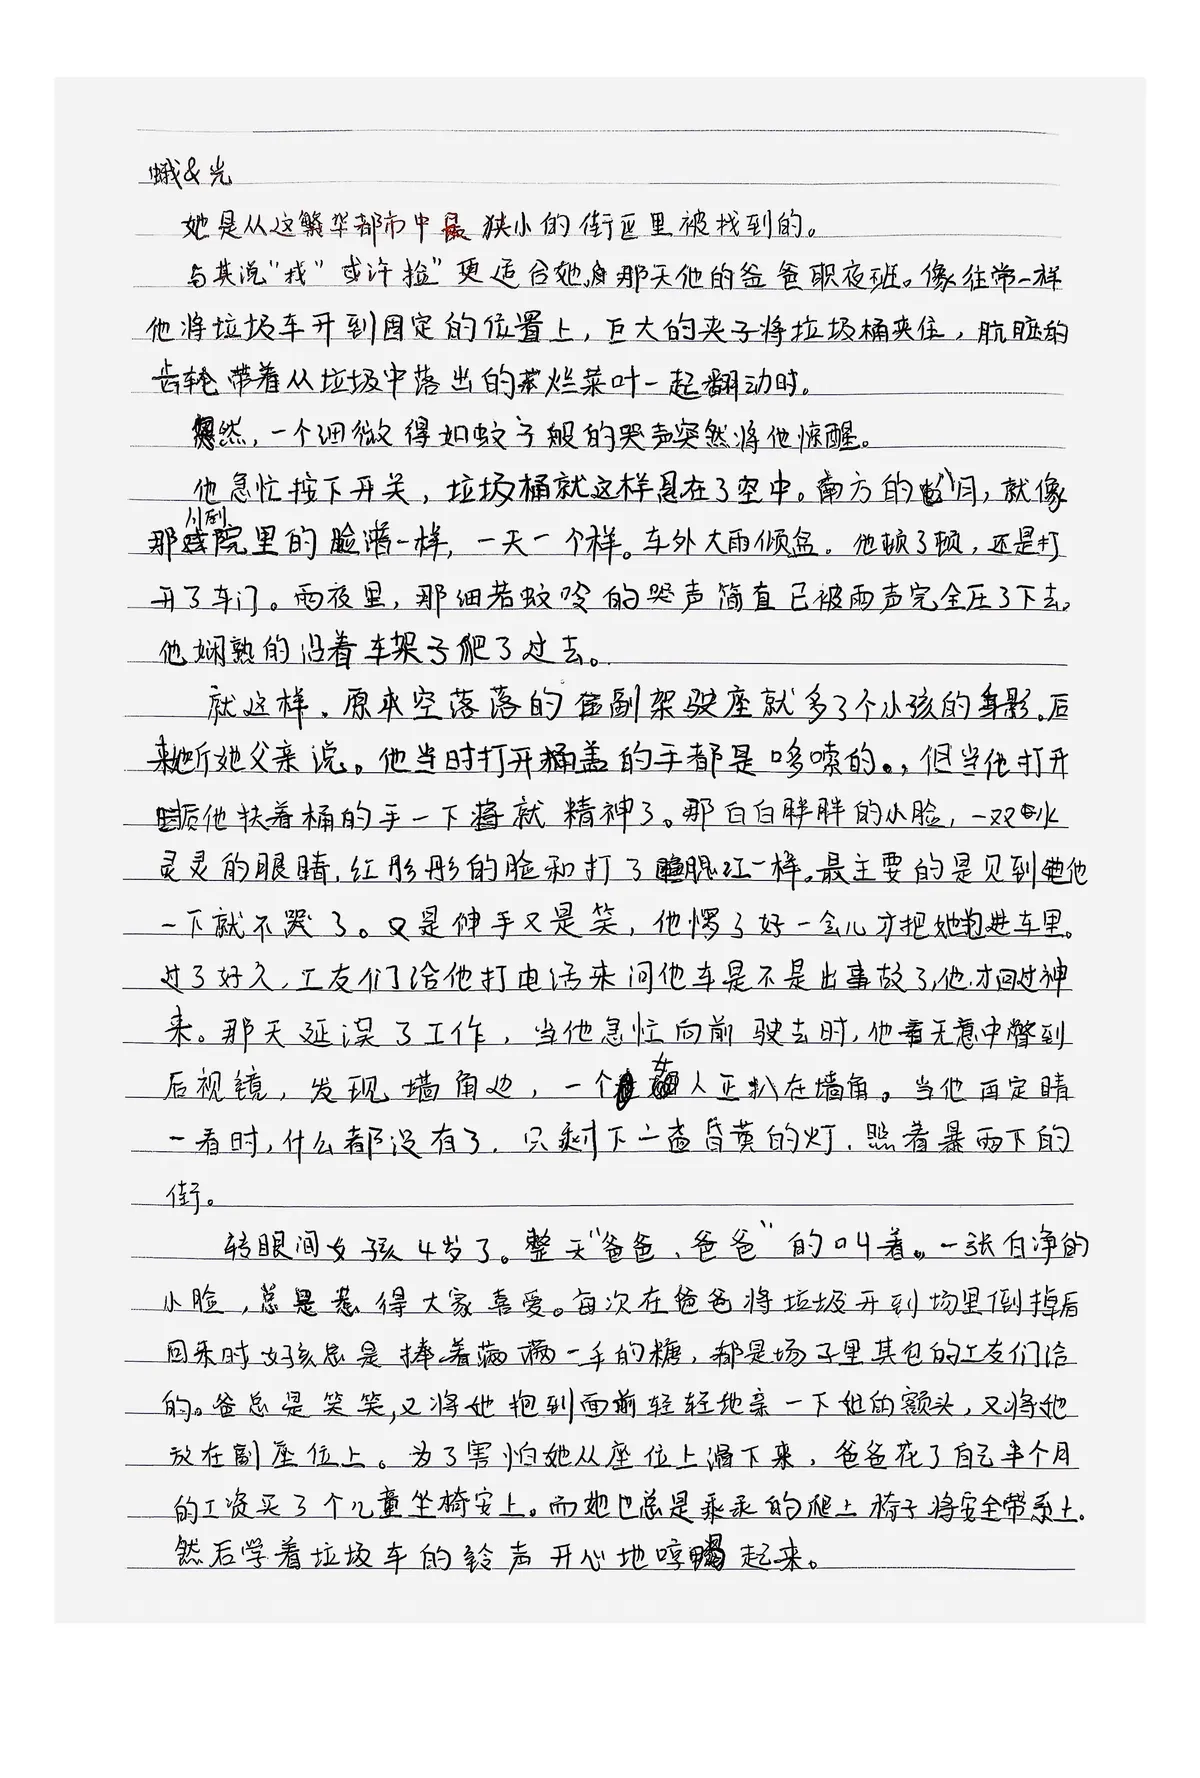 蛾&光
她是从这繁华都市中最狭小的街区里被找到的。
与其说"找"或许捡"更适合她,那天他的爸爸职夜班。像往常一样
他将垃圾车开到固定的位置上，巨大的夹子将垃圾桶夹住，肮脏的
齿轮带着从垃圾中落出的烂菜叶一起翻动时。
忽然，一个细微得如蚊子般的哭声突然将他惊醒。
他急忙按下开关，垃圾桶就这样悬在了空中。南方的 月，就像
那川剧院里的脸谱一样，一天一个样。车外大雨倾盆。他顿了顿，还是打
开了车门。雨夜里，那细若蚊吟的哭声简直已被雨声完全压了下去。
他娴熟的沿着车架子爬了过去。
就这样，原来空落落的副架驶座就多了个小孩的身影。后
来她听她父亲说。他当时打开桶盖的手都是哆嗦的。，但当他打开
后他扶着桶的手一下就精神了。那白白胖胖的小脸，一双水
灵灵的眼睛，红彤彤的脸和打了腮红一样。最主要的是见到他
一下就不哭了。又是伸手又是笑，他愣了好一会儿才把她抱进车里。
过了好久，工友们给他打电话来问他车是不是出事故了，他才回过神
来。那天延误了工作，当他急忙向前驶去时，他无意中瞥到
后视镜，发现墙角边，一个女人正扒在墙角。当他再定睛
一看时，什么都没有了，只剩下一盏昏黄的灯，照着暴雨下的
街。
转眼间女孩4岁了。整天"爸爸、爸爸"的叫着。一张白净的
小脸，总是惹得大家喜爱。每次在爸爸将垃圾开到场里倒掉后
回来时女孩总是捧着满满一手的糖，都是场子里其他的工友们给
的。爸总是笑笑，又将她抱到面前轻轻地亲一下她的额头，又将她
放在副座位上。为了害怕她从座位上滑下来，爸爸花了自己半个月
的工资买了个儿童坐椅安上。而她也总是乖乖的爬上椅子将安全带系上。
然后学着垃圾车的铃声开心地哼唱起来。